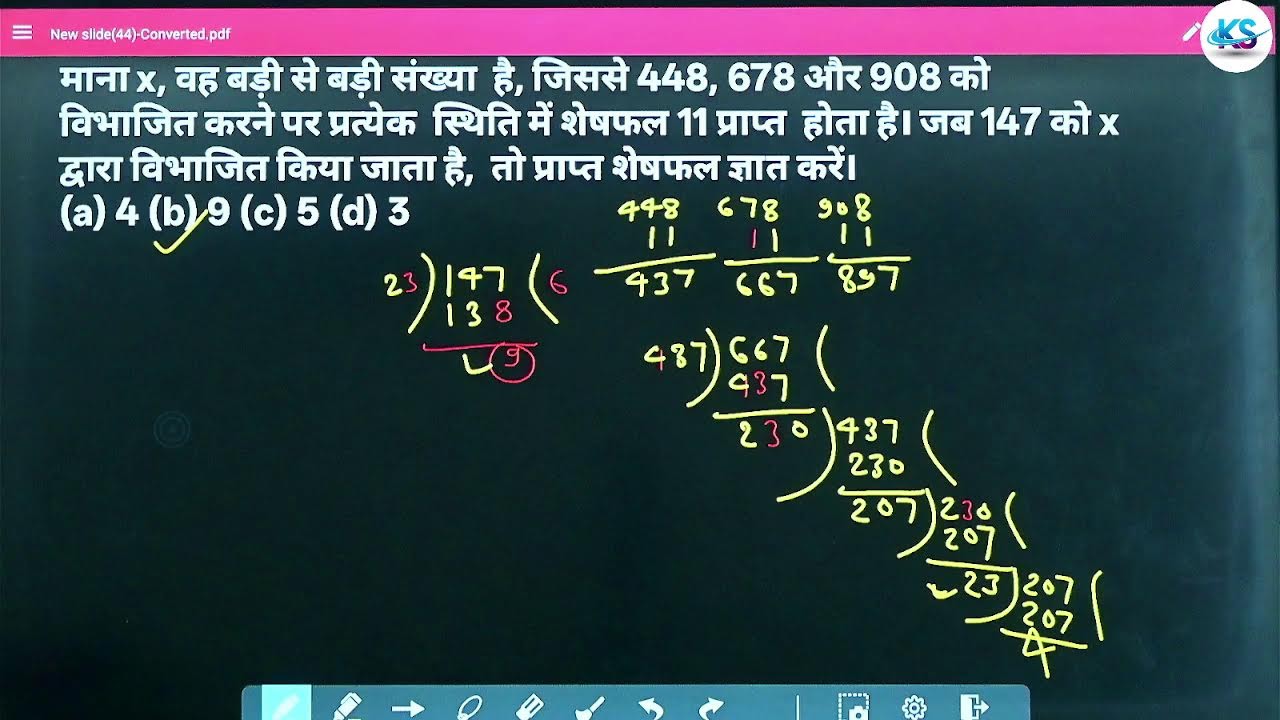 New slide(44)-Converted.pdf
KS
माना x, वह बड़ी से बड़ी संख्या है, जिससे 448, 678 और 908 को
विभाजित करने पर प्रत्येक स्थिति में शेषफल 11 प्राप्त होता है। जब 147 को x
द्वारा विभाजित किया जाता है, तो प्राप्त शेषफल ज्ञात करें।
(a) 4 (b) 9 (c) 5 (d) 3
448 678 908
11 11 11
437 667 897
23) 147 ( 6
138
9
437) 667 (
437
230) 437 (
230
207) 230 (
207
23) 207 (
207